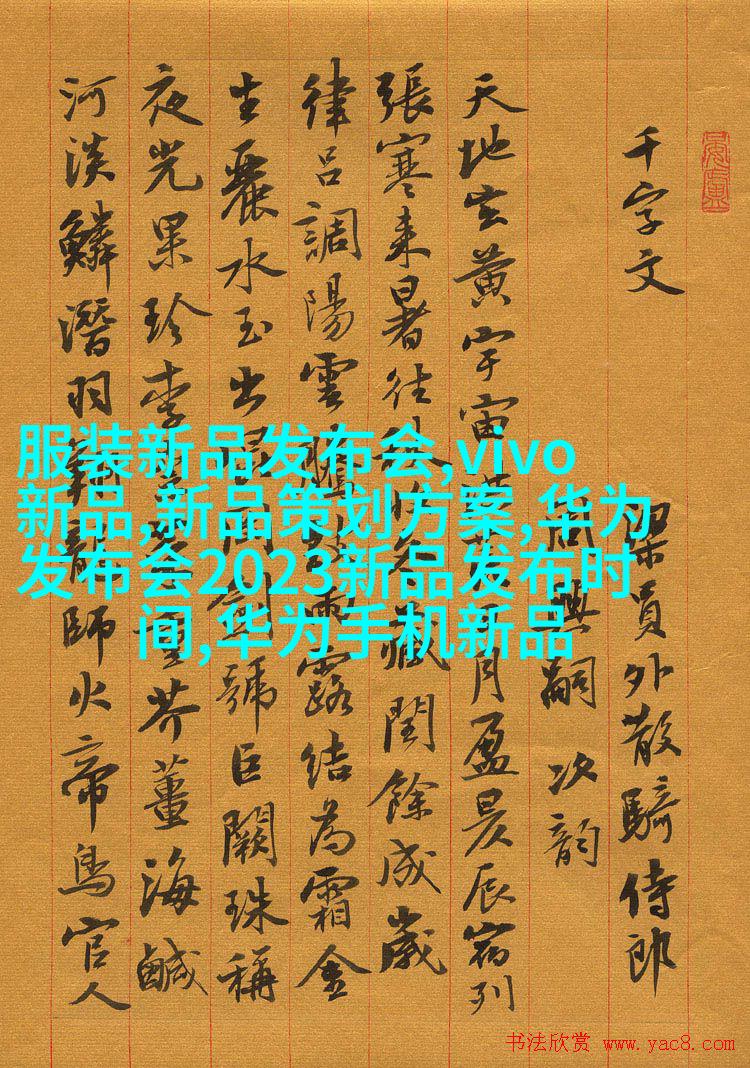 千字文
梁員外散騎侍郎
周興嗣 次韵
天地玄黃宇宙洪荒日月盈昃辰宿列
張寒來暑往秋收冬藏閏餘成歲
律吕調陽雲騰致雨露結為霜金
生麗水玉出崑岡劍號巨闕珠稱
夜光果珍李柰菜重芥薑海鹹
河淡鱗潛羽翔龍師火帝鳥官人
服装新品发布会,vivo
新品,新品策划方案,华为
发布会2023新品发布时
间,华为手机新品
书法欣赏 www.yac8.com